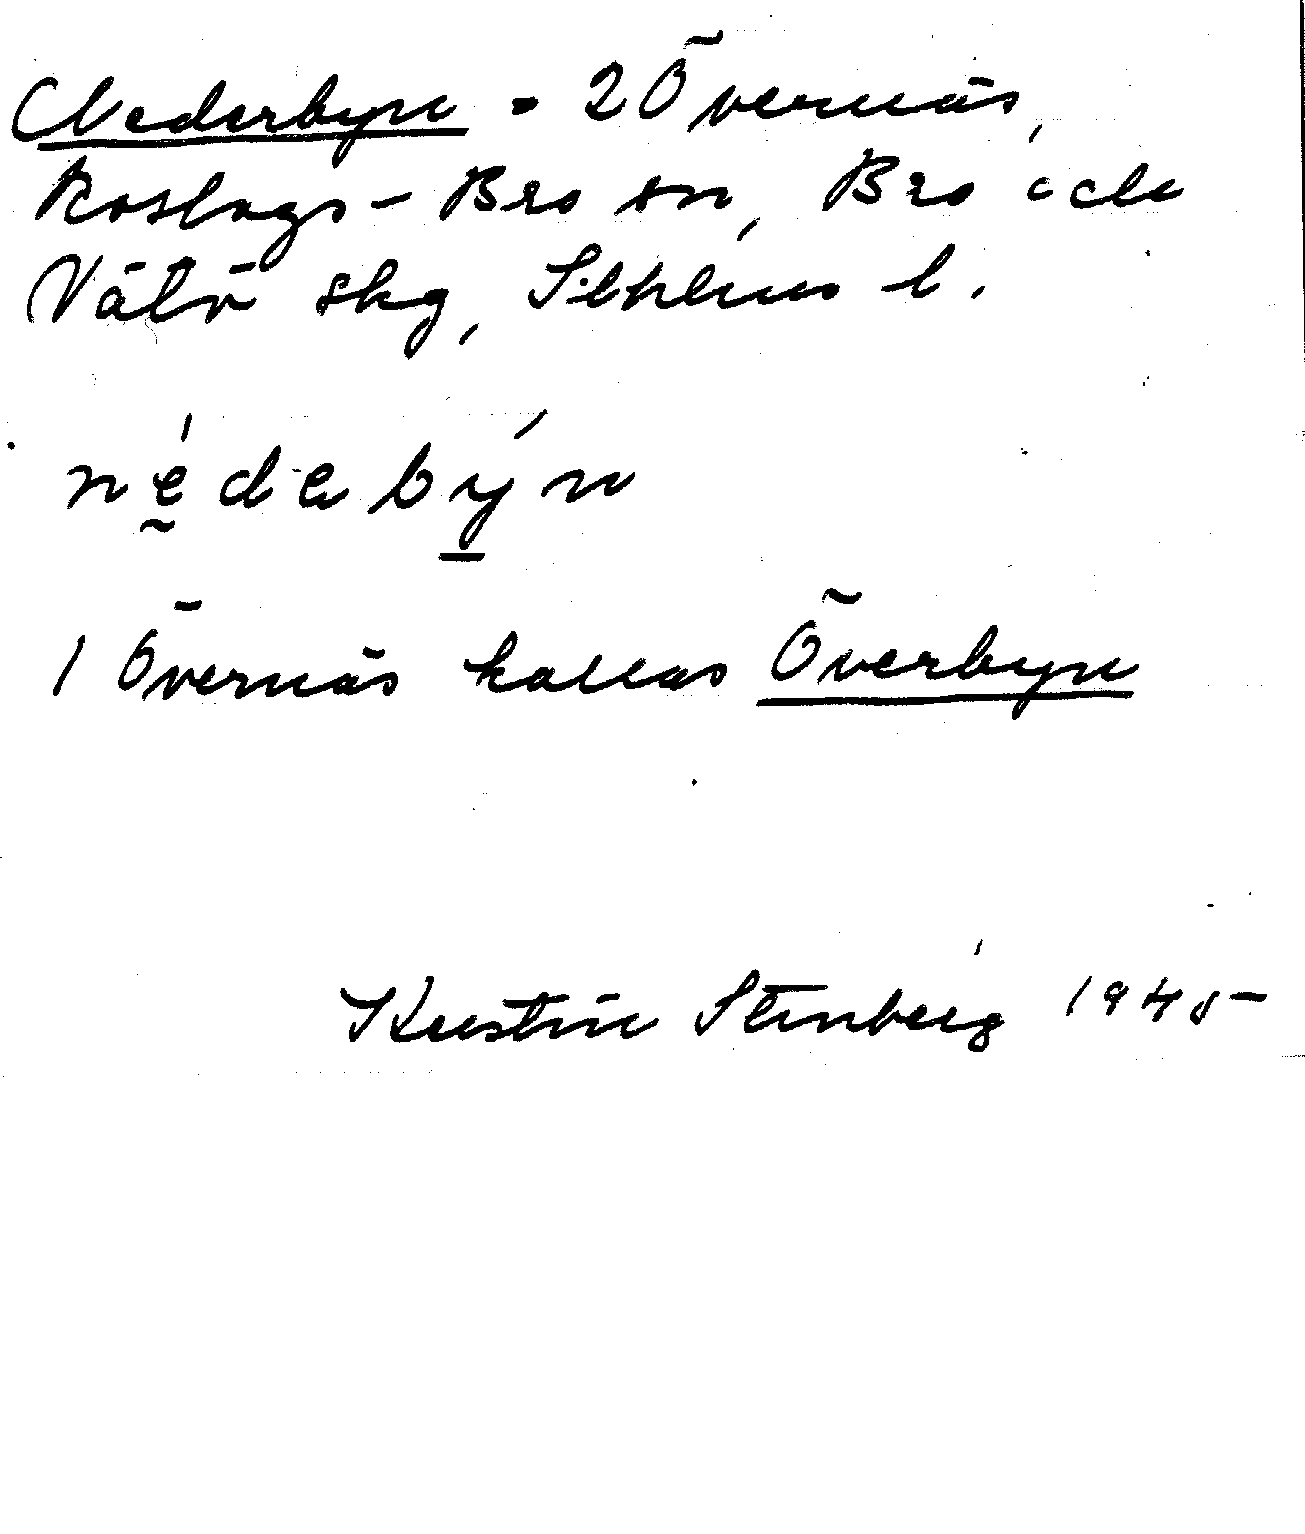 Nederbyn - 2 Övernäs,
Roslags-Bro sn, Bro o
Vätö skg, Sthlms l.
nedebyn
1 Övernäs kallas Överbyn
Kerstin Stenberg 1945